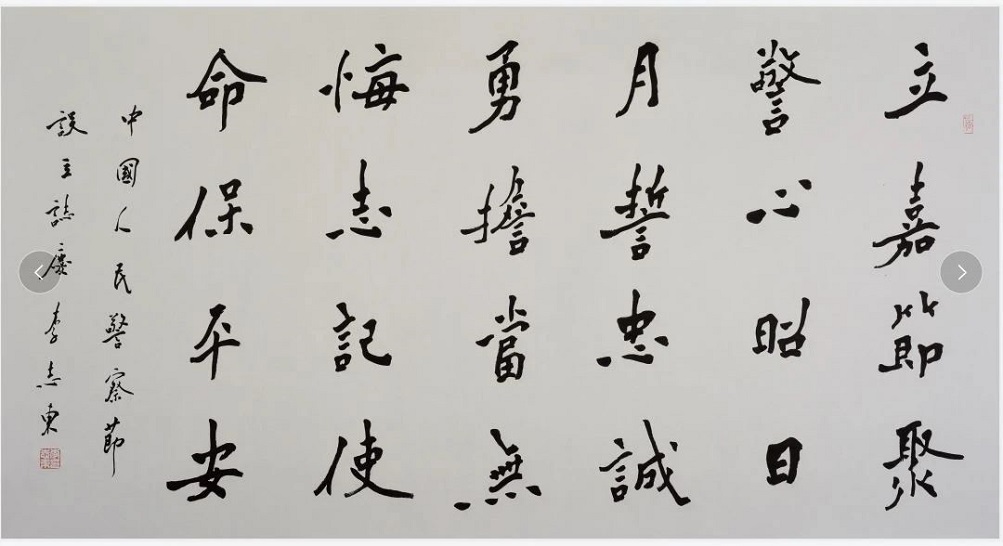 立嘉節聚
警心昭日
月誓忠誠
勇擔當無
悔志記使
命保平安
中國人民警察節
設立誌慶李志東